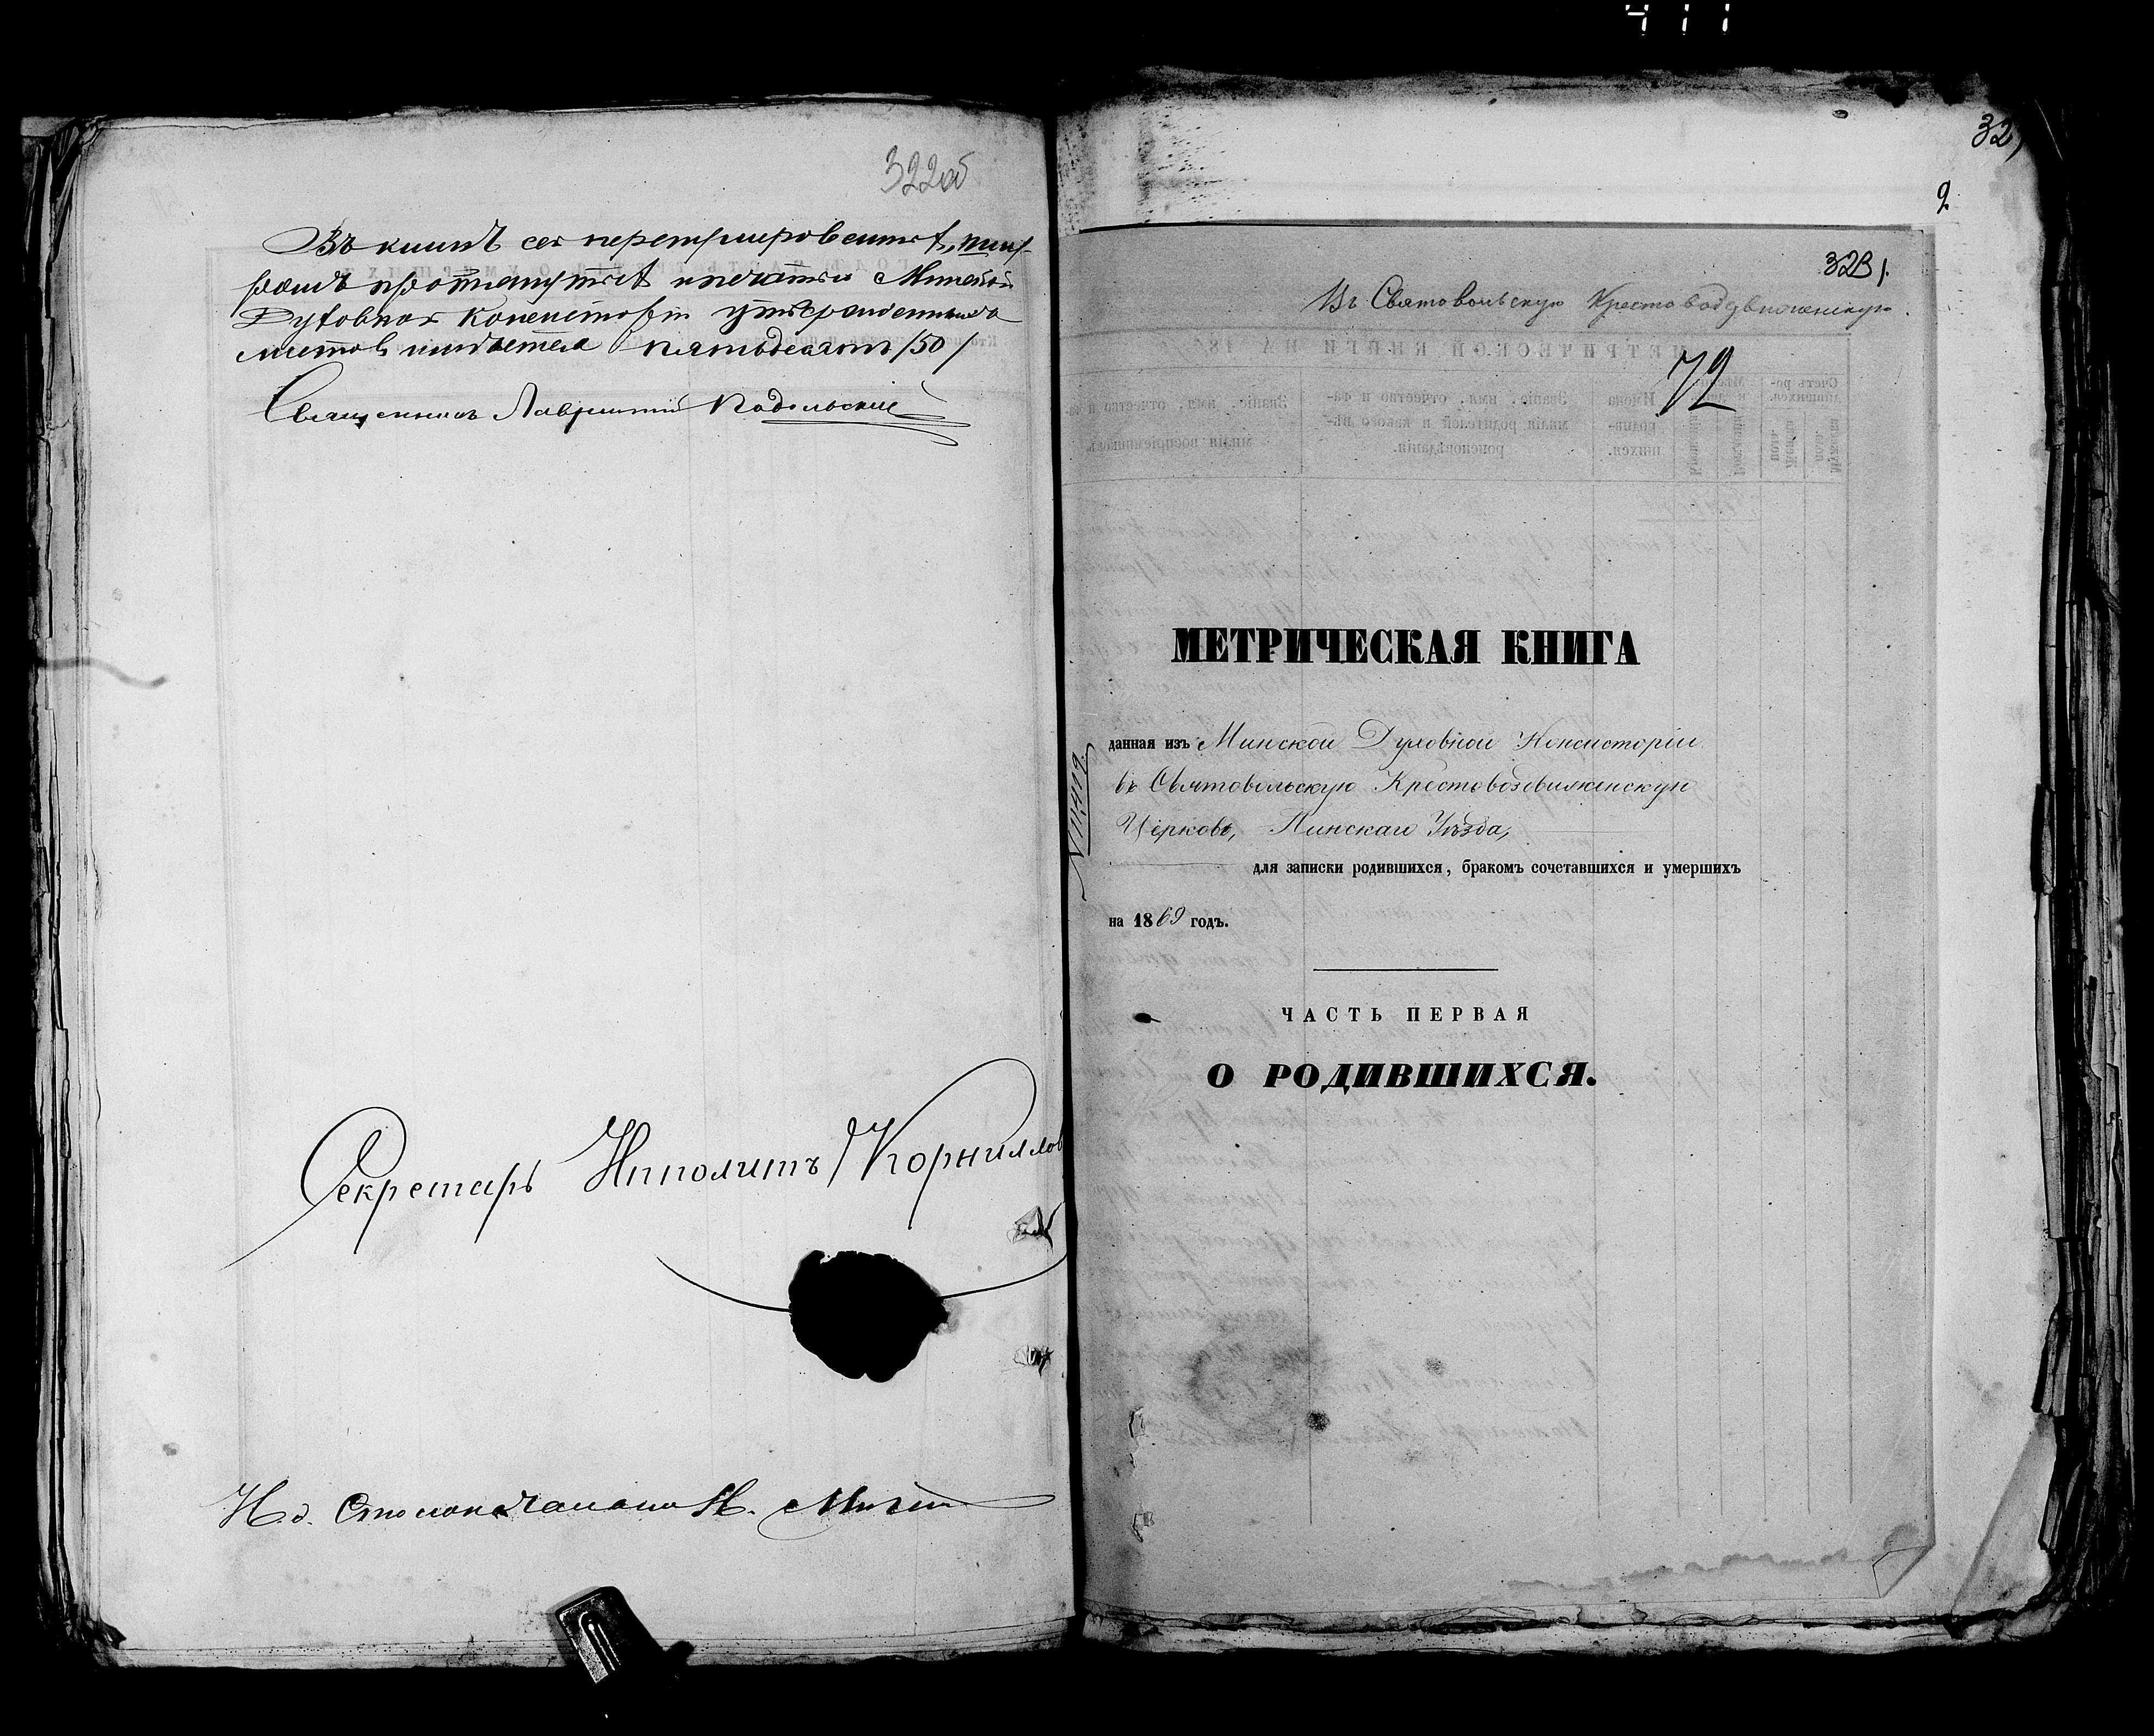 411
322об
Въ книгѣ сей перенумерованныхъ, шну-
ромъ протянутыхъ и печатью Минской
Духовной Консисторіи утвержденныхъ
листовъ имѣется пятьдесятъ /50/
Священникъ Лаврентій Подольскій
Секретарь Ипполитъ Корниллов
И. д. Столоначальника
32
2
323
Въ Святовольскую Крестовоздвиженскую.
72
МЕТРИЧЕСКАЯ КНИГА
данная изъ Минской Духовной Консисторіи
въ Святовольскую Крестовоздвиженскую
Церковь, Пинскаго Уѣзда,
для записки родившихся, бракомъ сочетавшихся и умершихъ
на 1869 годъ.
ЧАСТЬ ПЕРВАЯ
О РОДИВШИХСЯ.